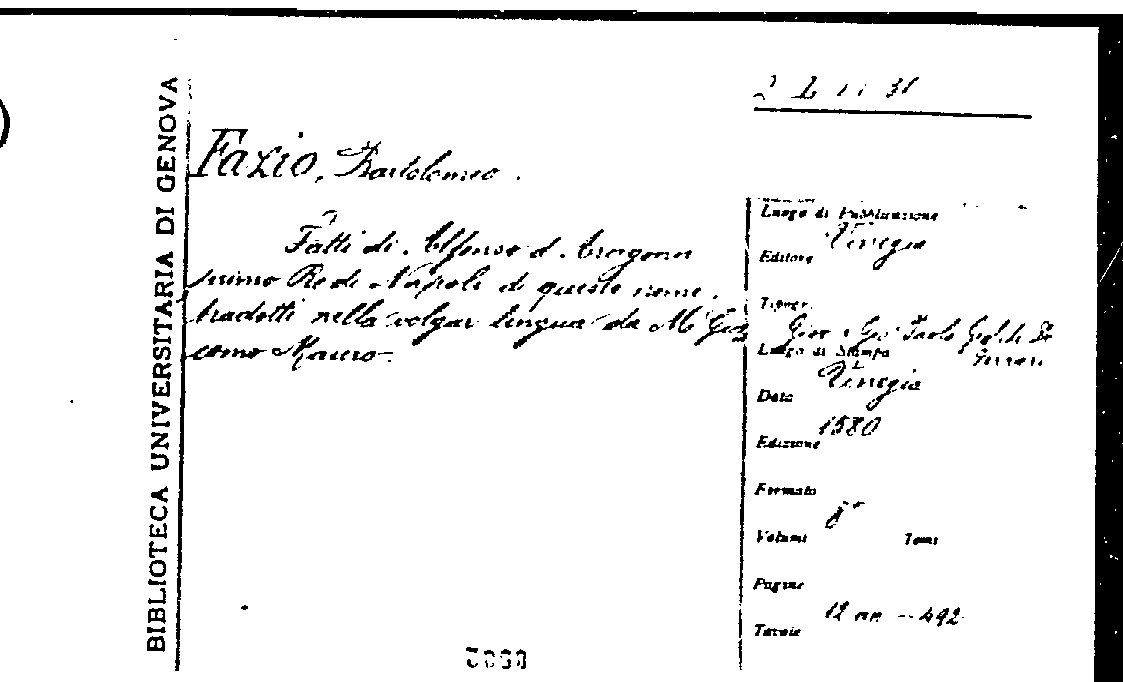 BIBLIOTECA UNIVERSITARIA DI GENOVA
Fazio, Bartolomeo.
Fatti di Alfonso d'Aragona
primo Re di Napoli di questo nome,
tradotti nella volgar lingua da M. Gia
como Mauro.
Luogo di Pubblicazione
Vinegia
Editore
Tipogr.
Giov. e Gio. Paolo Giol. de
Ferrari
Luogo di Stampa
Vinegia
Data
1580
Edizione
Formato
8°
Volumi Tomi
Pagine
12 nn - 492
Tavole